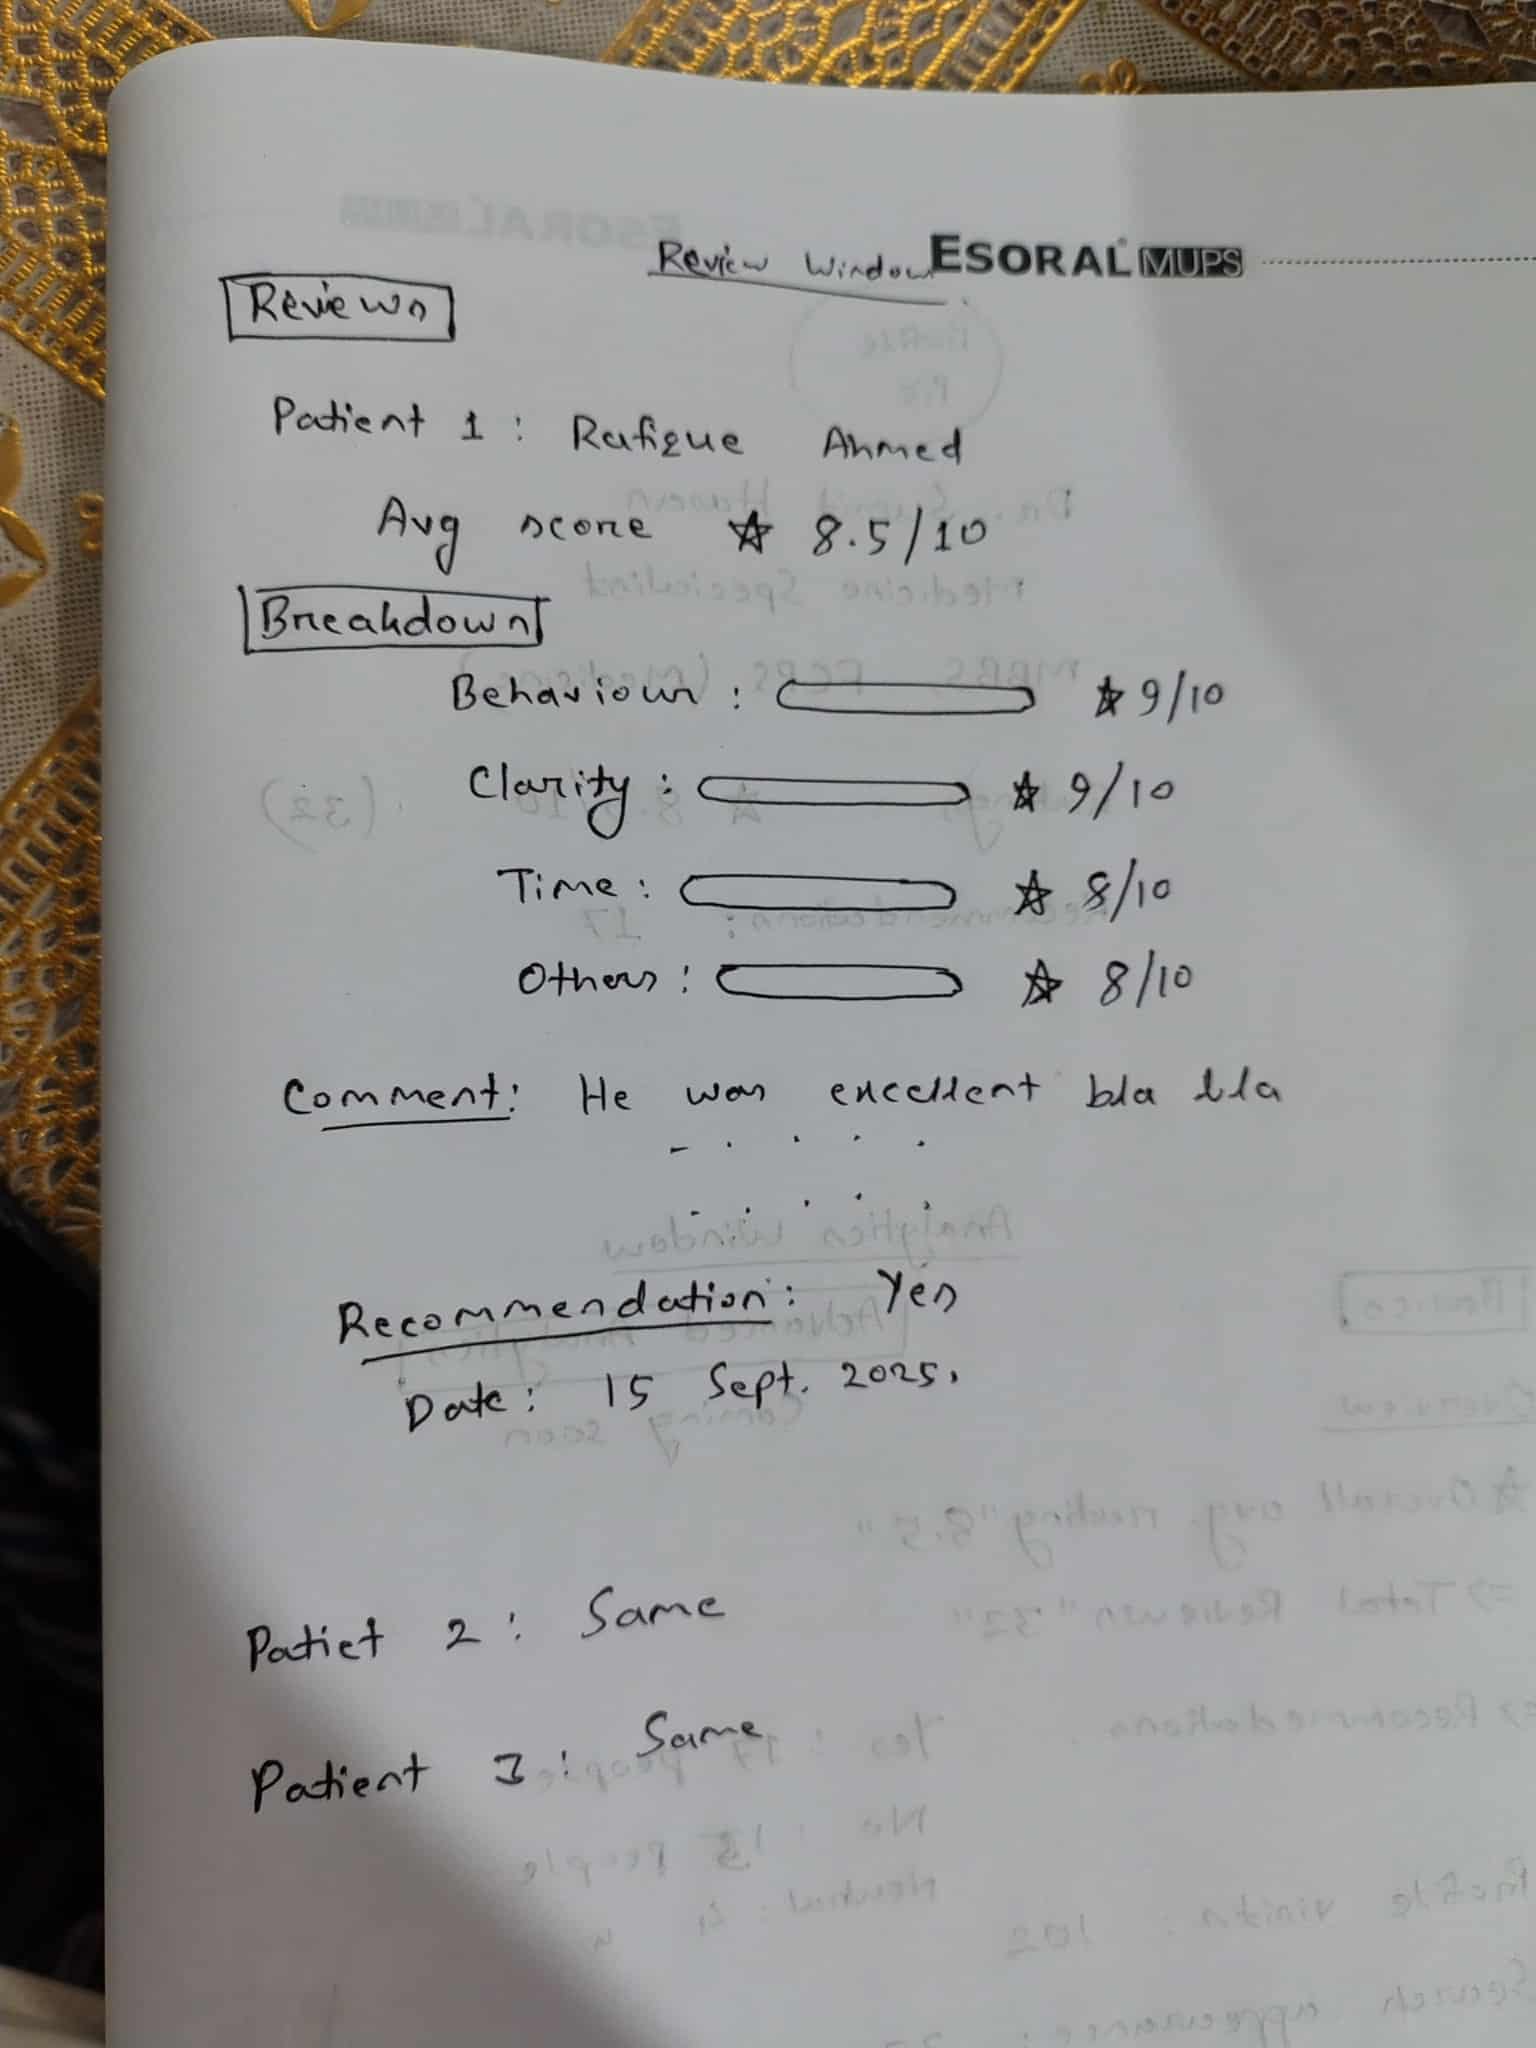 Review Window ESORAL MUPS
Reviews
Patient 1 : Rafique Ahmed
Avg score ☆ 8.5/10
Breakdown
Behaviour : ☆ 9/10
Clarity : ☆ 9/10
Time : ☆ 8/10
Others : ☆ 8/10
Comment : He was excellent bla bla
Recommendation : Yes
Date : 15 Sept. 2025.
Patiet 2 : Same
Patient 3 : Same